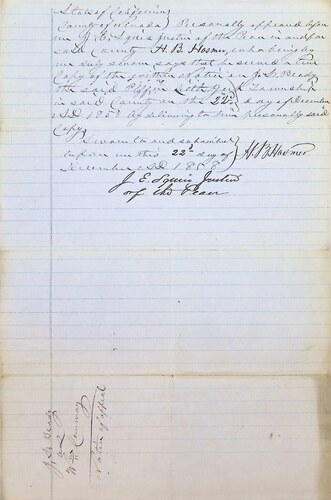 State of California
County of Nevada } Personally appeared before
me J. E. Squire Justice of the Peace in and for
said County H. B. Hosmer, who being by
me duly sworn says that he served a true
Copy of the within Notice on J. G. Beady
the said Little York Township
in said County on the 22d day of December
AD 185 by delivering to him personally said
Copy
Sworn to and subscribed
before me this 22d day of } H. B. Hosmer
December AD 185
J. E. Squire Justice
of the Peace
J. G. Beady
vs
Wm
Notice of appeal